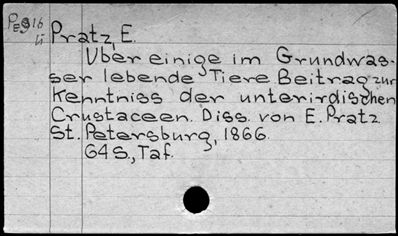 Pratz, E.
Über einige im Grundwas-
ser lebende Tiere Beitrag zur
Kenntniss der unterirdischen
Crustaceen. Diss. von E. Pratz
St. Petersburg, 1866.
64 S., Taf.